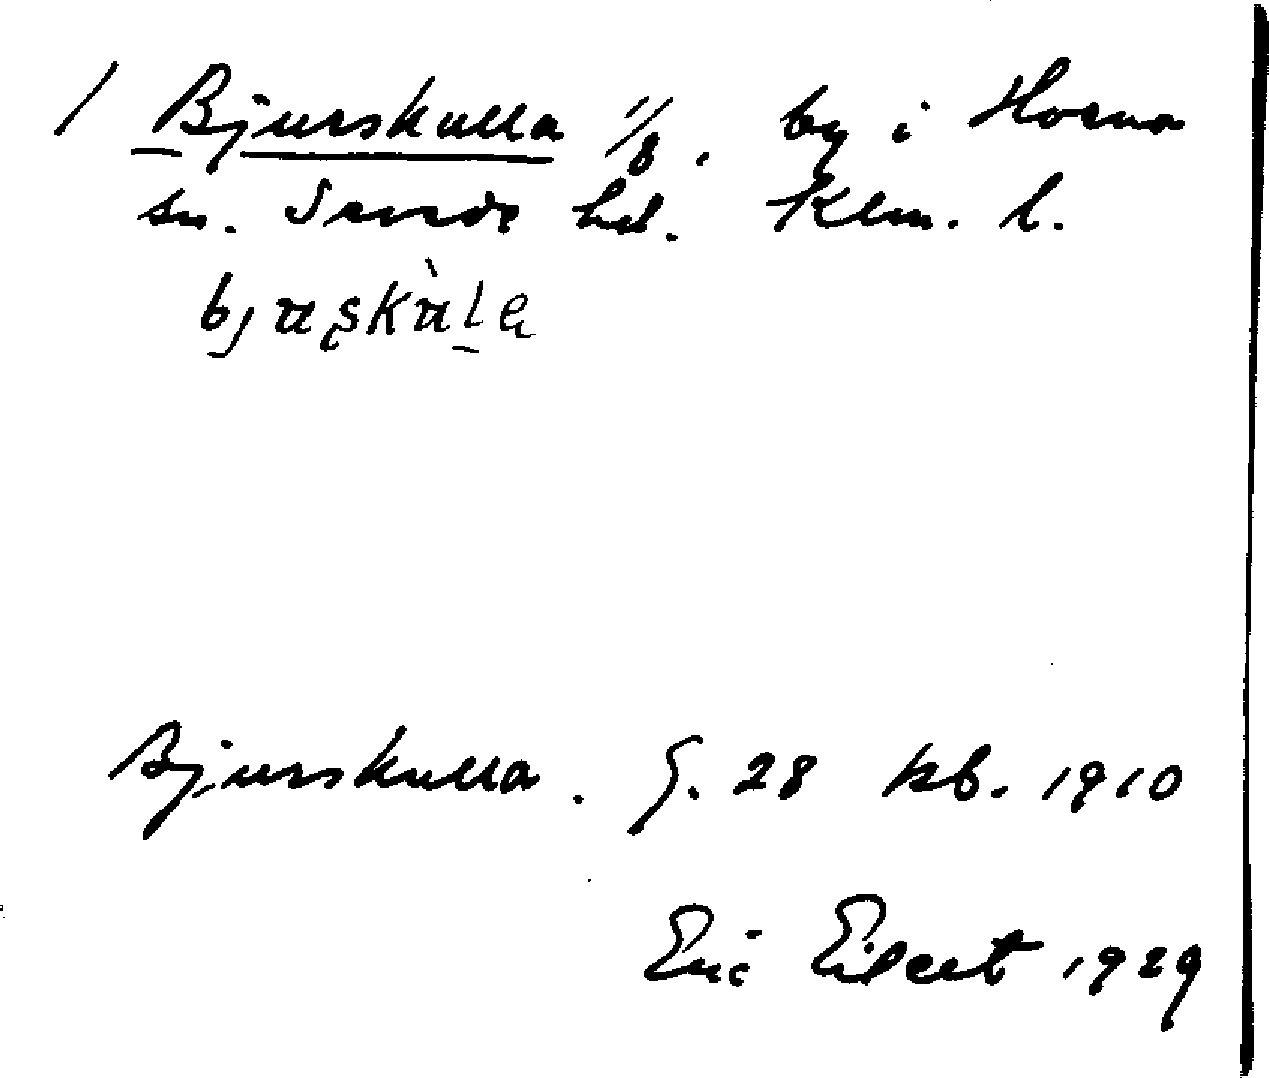 / Bjurskulla 1/8. by i Horna
sn. Tveds hd. Klm. l.
Bjurskulla. G. 28 kb. 1910
Eric Eilert 1929